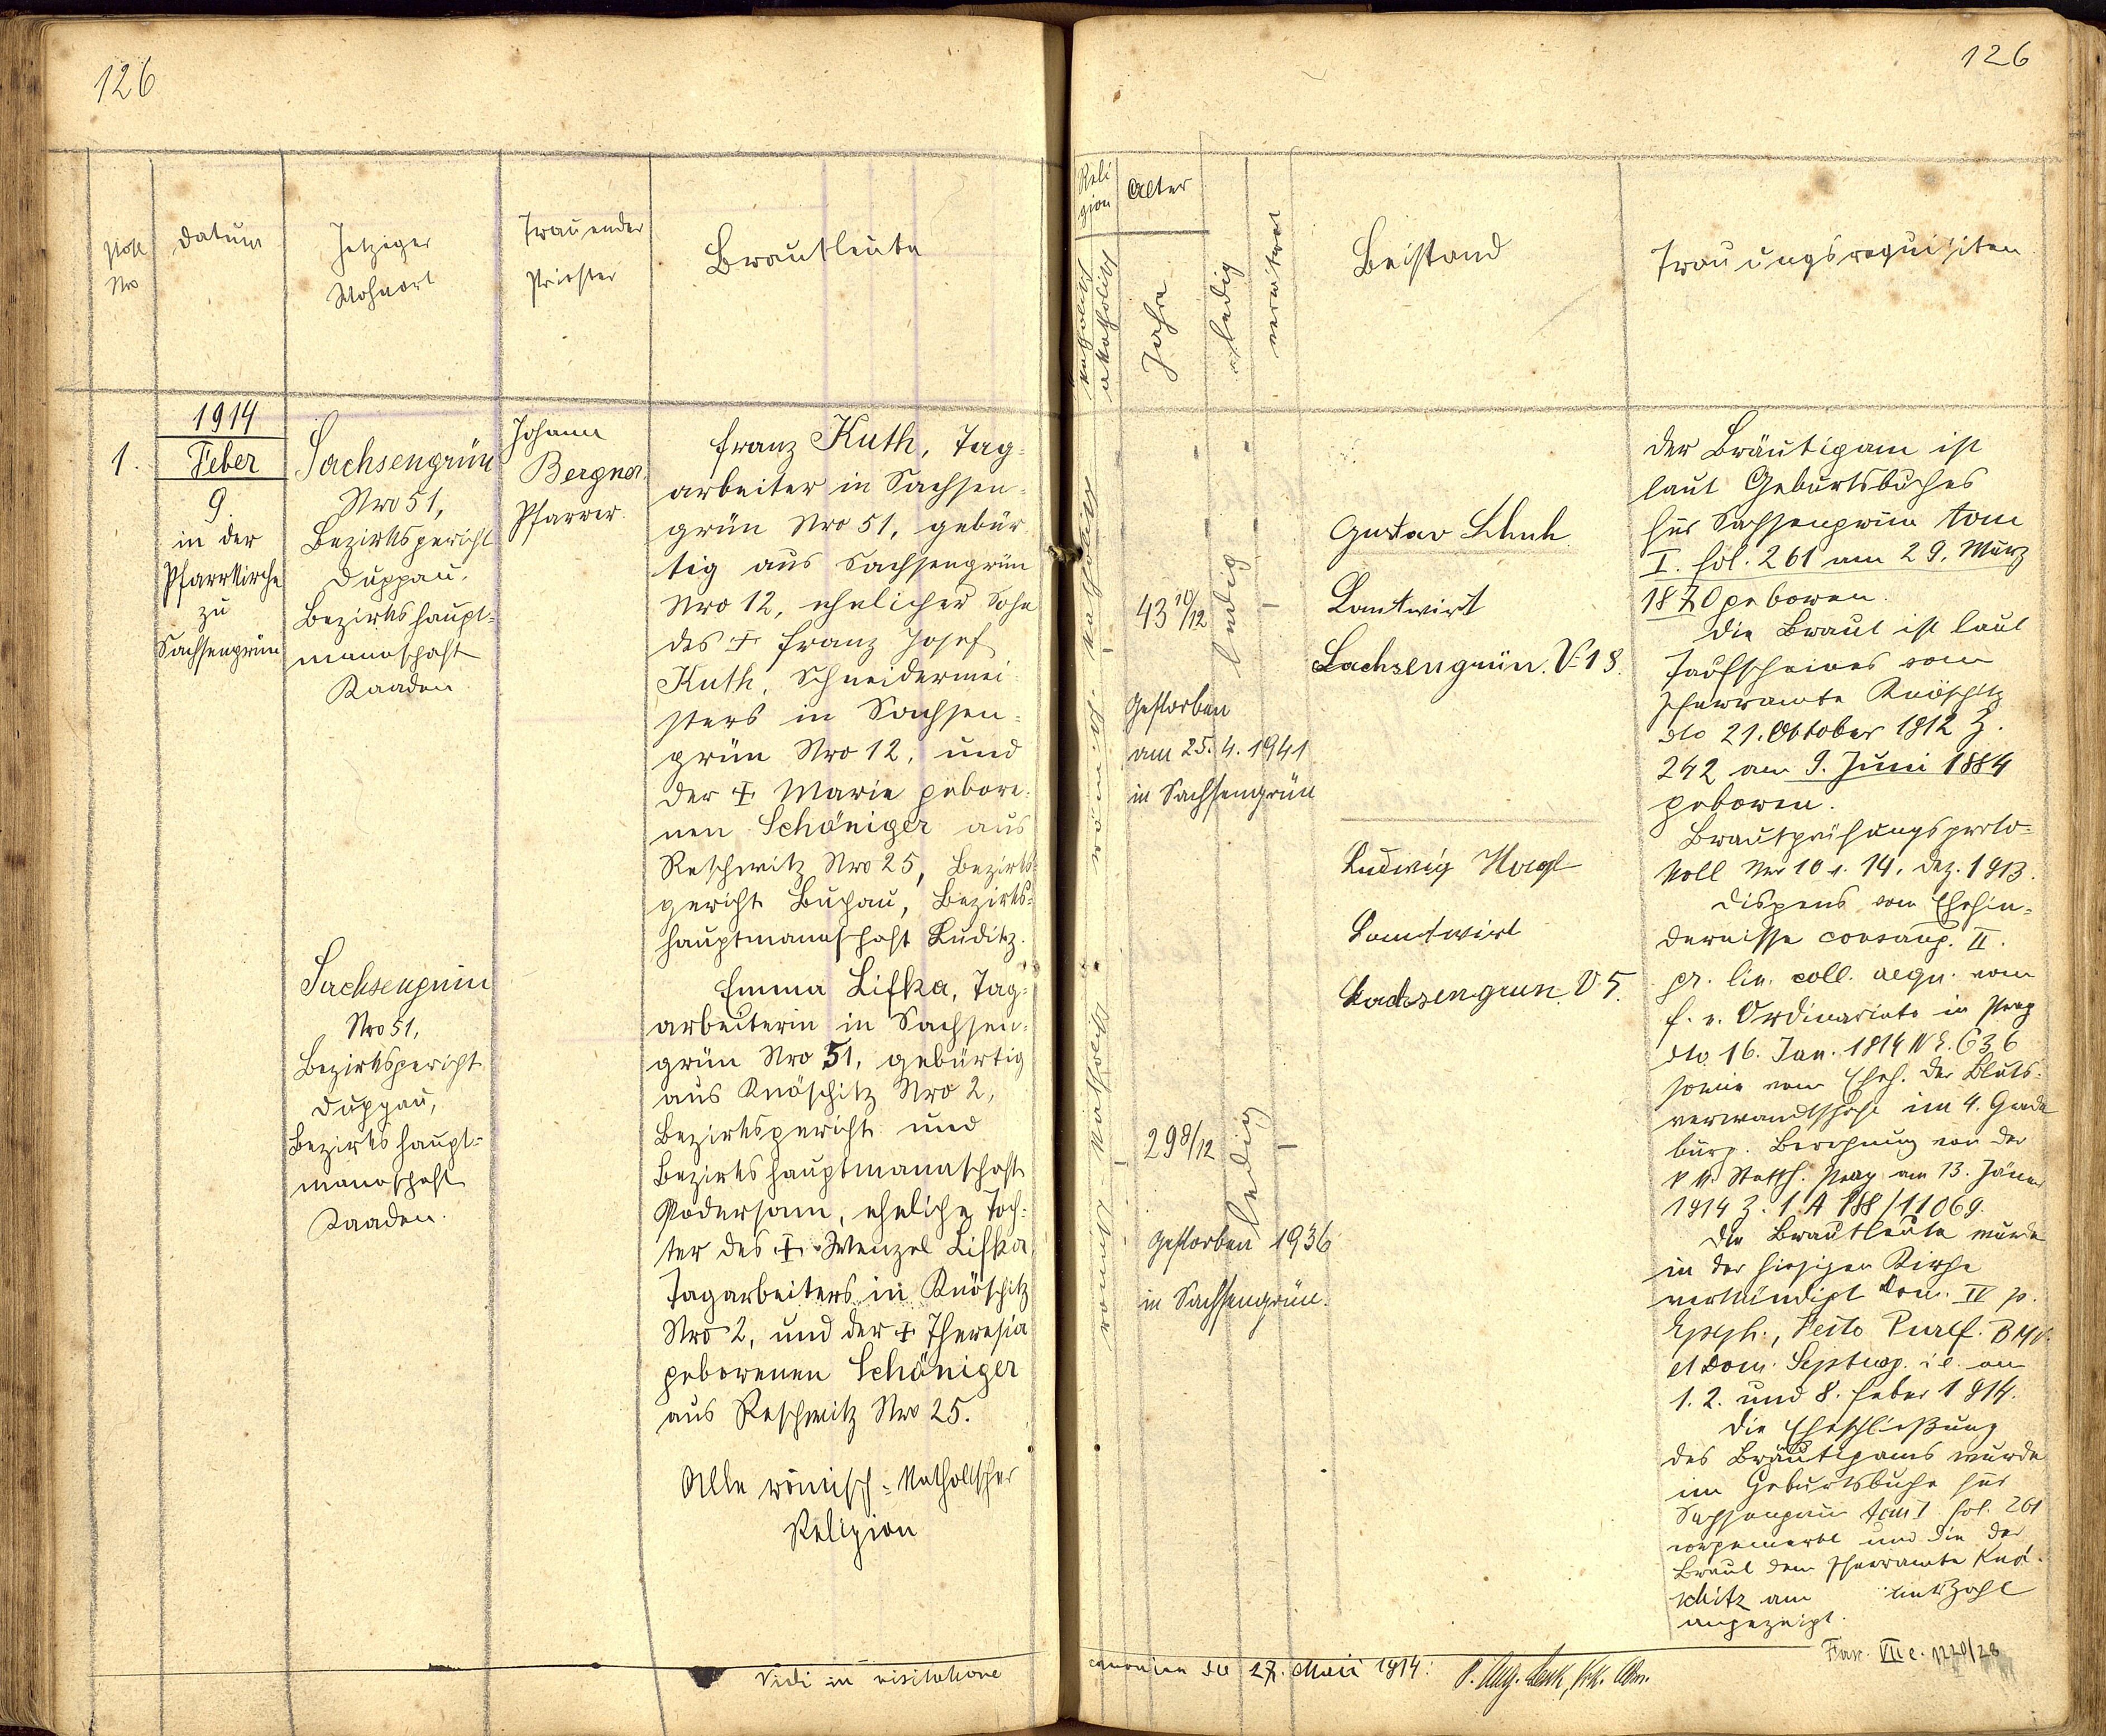 126
126
Post Nro
Datum
Jetziger
Wohnort
Trauender
Priester
Brautleute
Reli
gion
katholisch
akatholisch
Alter
Jahre
ledig
verwitwet
Beistand
Trauungsrequisiten
1.
1914
Feber
9.
in der
Pfarrkirche
zu
Sachsengrün
Sachsengrün
Nro 51,
Bezirksgericht
Duppau,
Bezirkshaupt=
mannschaft
Kaaden
Johann
Bergner,
Pfarrer.
Franz Kuth, Tag=
arbeiter in Sachsen=
grün Nro 51, gebür
tig aus Sachsengrün
Nro 12, ehelicher Sohn
des + Franz Josef
Kuth, Schneidermei
sters in Sachsen=
grün Nro 12, und
der + Marie gebore=
nen Schöniger aus
Reschwitz Nro 25, Bezirks=
gericht Buchau, Bezirks=
hauptmannschaft Luditz.
Sachsengrün
Nro 51,
Bezirksgericht
Duppau,
Bezirkshaupt=
mannschaft
Kaaden.
Emma Lifka, Tag=
arbeiterin in Sachsen=
grün Nro 51, gebürtig
aus Knöschitz Nro 2,
Bezirksgericht und
Bezirkshauptmannschaft
Podersam, eheliche Toch=
ter des + Wenzel Lifka
Tagarbeiters in Knöschitz
Nro 2, und der + Theresia
geborenen Schöniger
aus Reschwitz Nro 25.
Alle römisch=katholischer
Religion
römisch katholisch
43 10/12
ledig
–
Gestorben
am 25.4.1941
in Sachsengrün
römisch katholisch
29 8/12
ledig
–
Gestorben 1936
in Sachsengrün.
Gustav Schuh
Lantwirt
Sachsengrün. N 18.
Ludwig
Landwirt
Sachsengrün. N 5.
Der Bräutigam ist
laut Geburtsbuches
für Sachsengrün tom
I. fol. 261 am 29. März
1870 geboren.
Die Braut ist laut
Taufscheines vom
Pfarramte Knöschitz
dto 21. Oktober 1912 Z.
242 am 9. Juni 1884
geboren.
Brautprüfungsproto=
koll Nro 10 v. 14. Dez. 1913.
Dispens vom Ehehin=
dernisse consang. II.
gr. lin. coll. aequ. vom
f. e. Ordinariate in Prag
dto 16. Jan. 1914 N E. 636
sowie vom Eheh. der Bluts=
verwandtschaft im 4. Grade
bürg. Berechnung von der
k k. Statth. Prag am 13. Jäner
1914 Z. 1. A 188/11069.
Die Brautleute wurden
in der hiesigen Kirche
verkündigt Dom. IV p.
Epiph., Festo Purif. BMV.
et Dom. Septuag. i. e. am
1. 2. und 8. Feber 1914.
Die Eheschließung
des Bräutigams wurde
im Geburtsbuche für
Sachsengrün tom I fol. 261
vorgemerkt und die der
Braut dem Pfarramte Knö=
schitz am unt. Zahl
angezeigt.
Vidi in visitatione
canonica die 27. Maii 1914:
Fasc. VII e. 1220/28